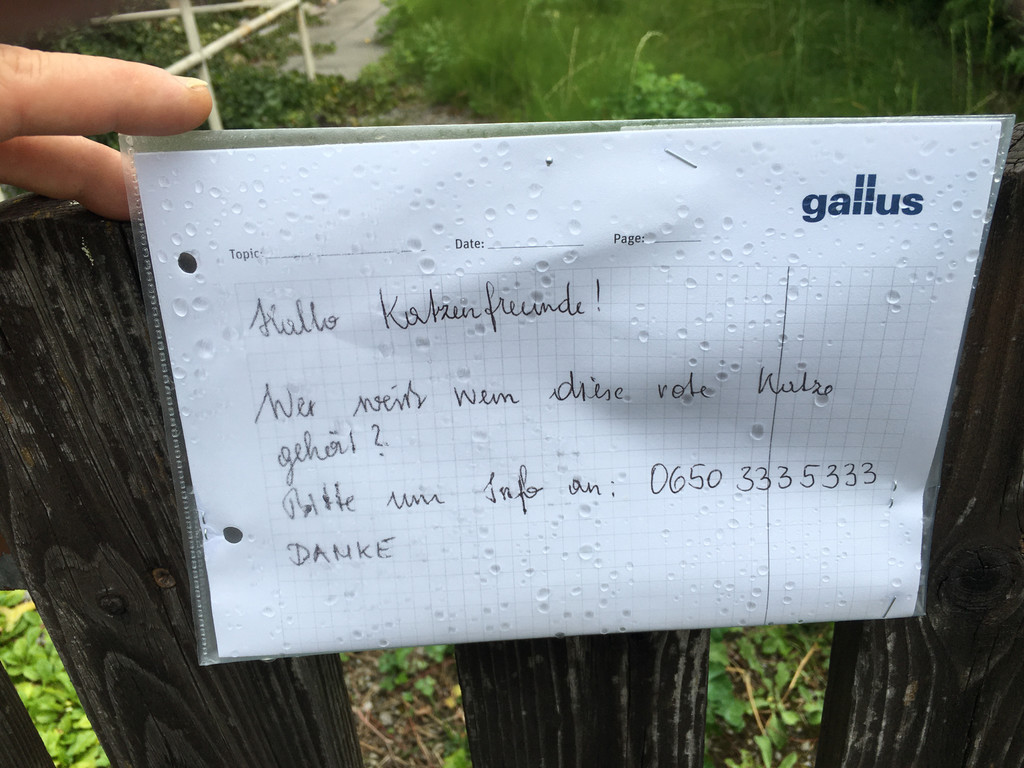 gallus
Topic: Date: Page:
Hallo Katzenfreunde!
Wer weiß wem diese rote Katze
gehört?
Bitte um Info an: 0650 3335333,
DANKE